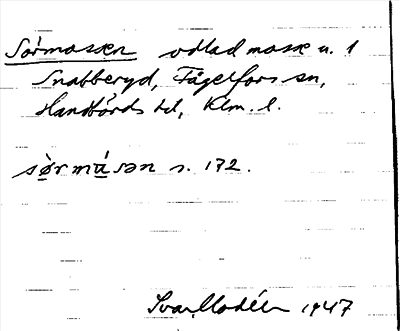 Sörmossen odlad mosse u. 1
Snabberyd, Fågelfors sn,
Handbörds hd, Klm. l.
sö̀rmásən s. 172.
Ivar Modéer 1947